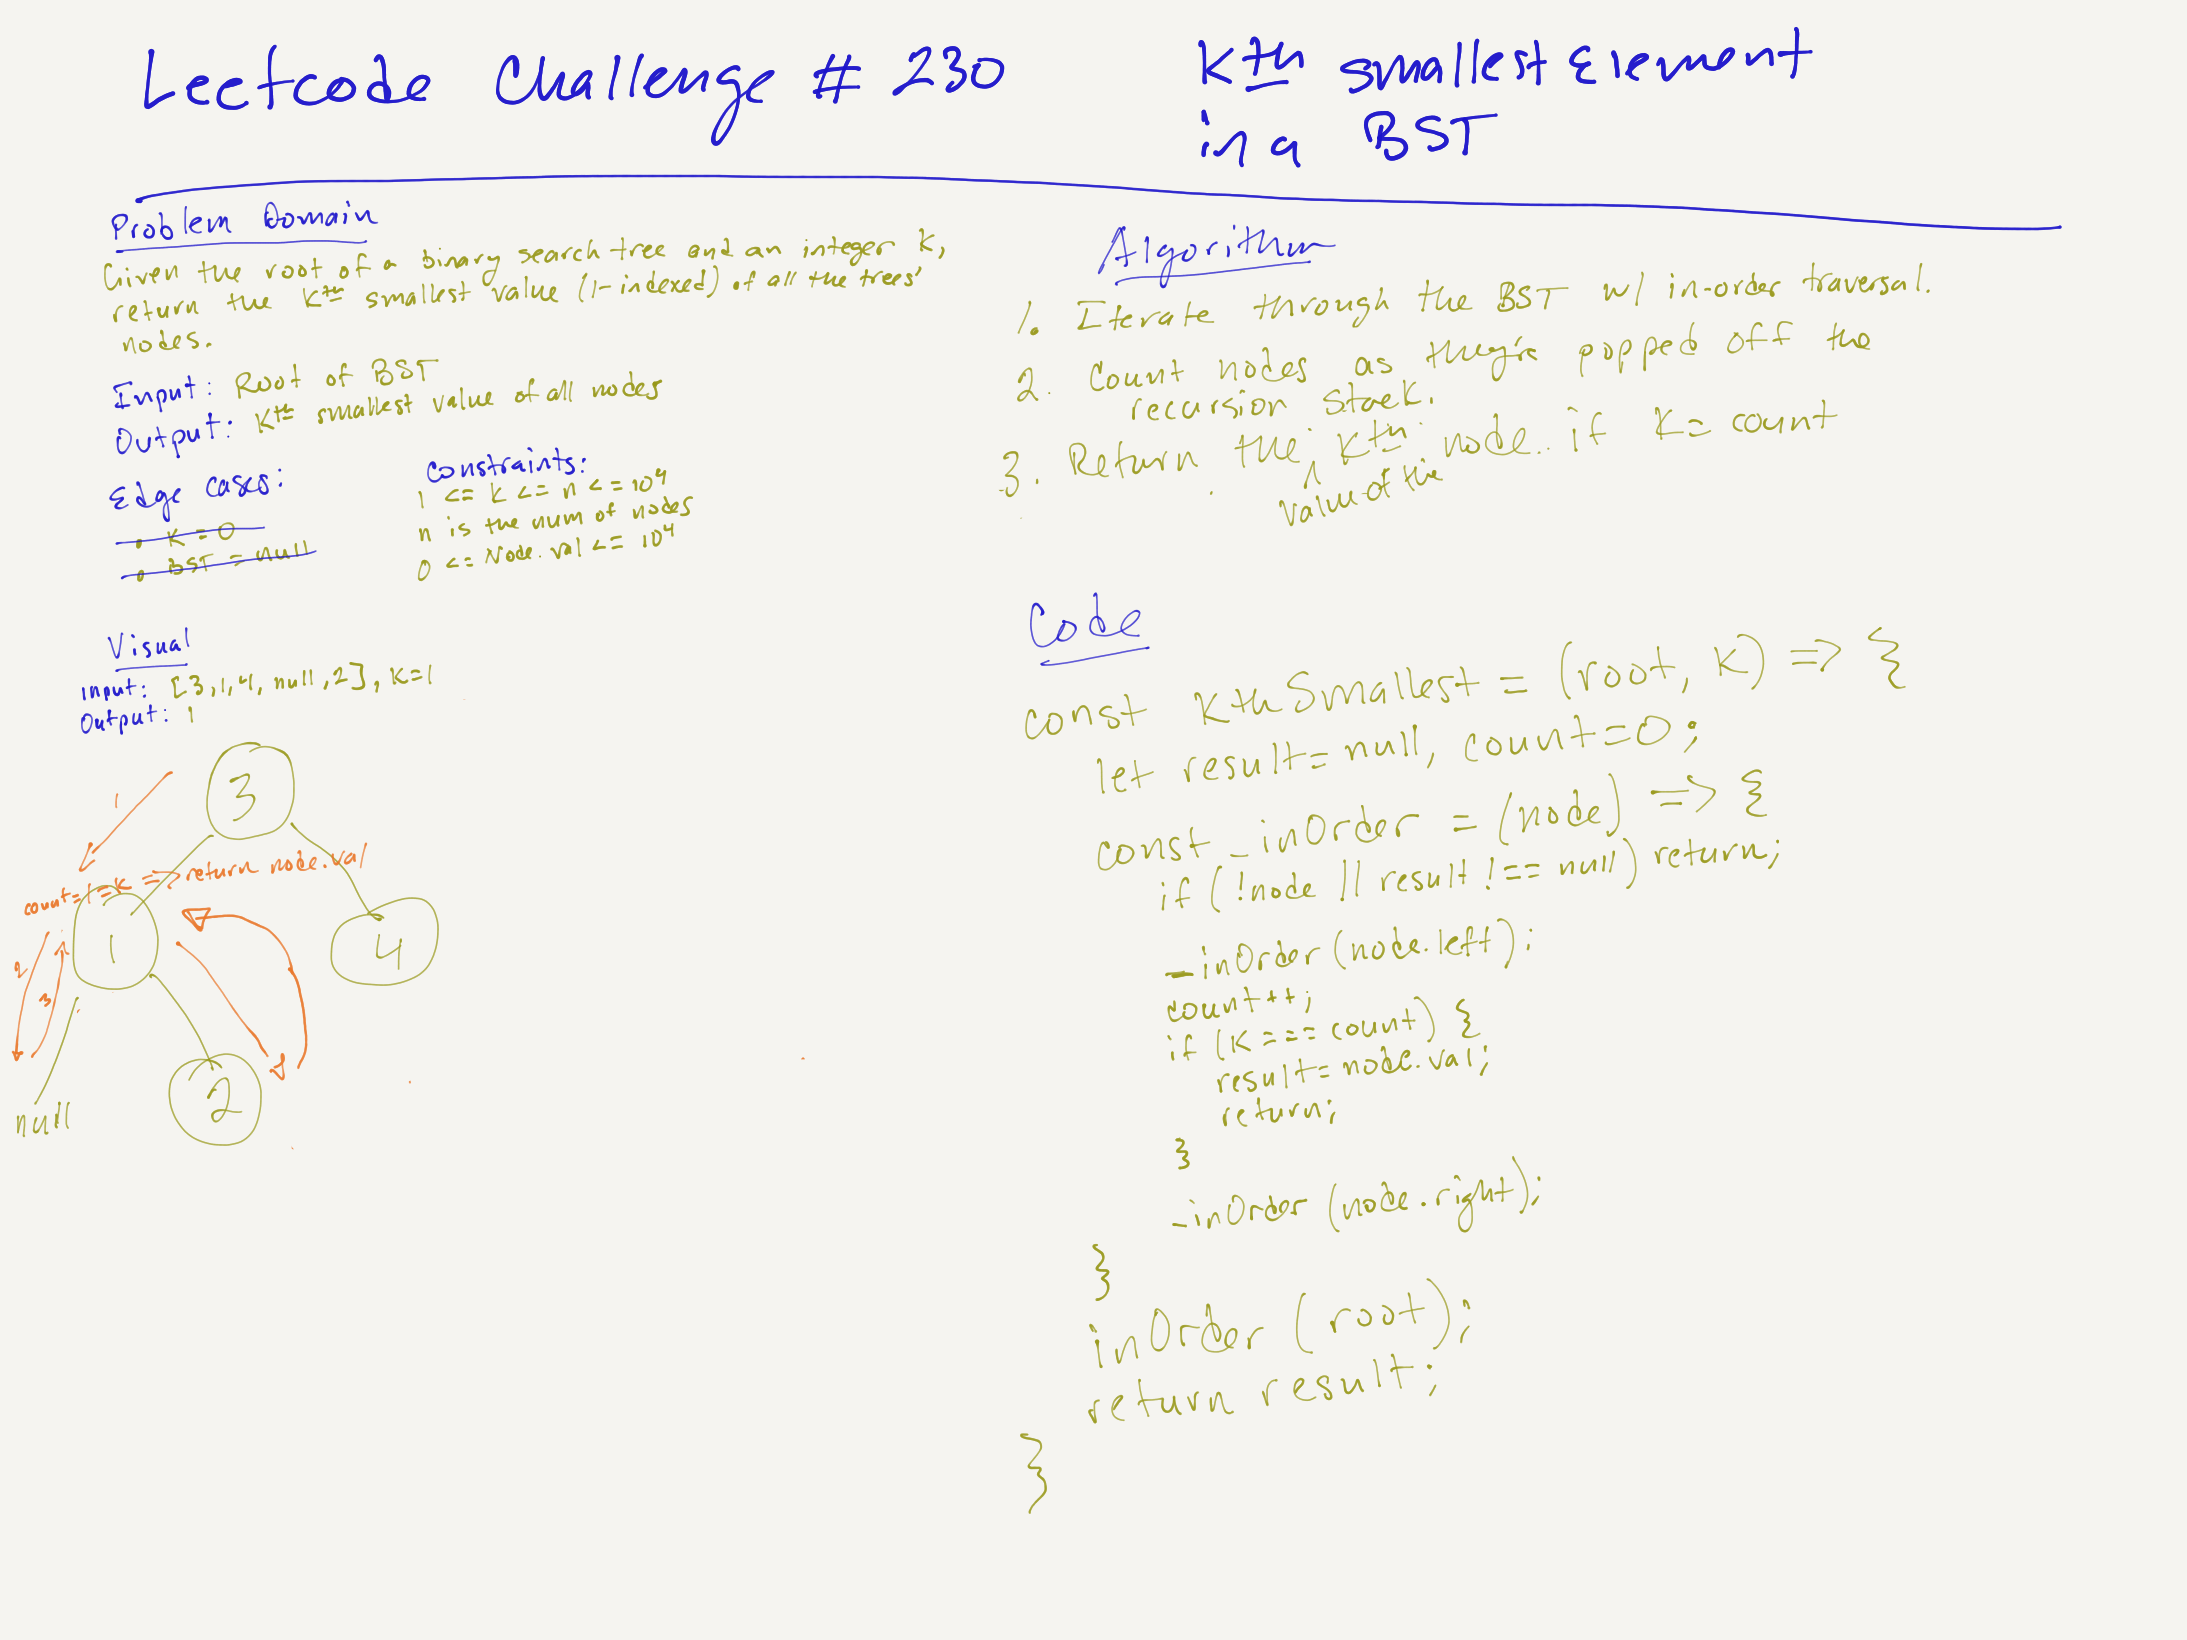 Leetcode Challenge # 230
Kth smallest Element
in a BST
Problem Domain
Given the root of a binary search tree and an integer k,
return the Kth smallest value (1-indexed) of all the trees'
nodes.
Input: Root of BST
Output: Kth smallest value of all nodes
Edge cases:
• K = 0
• BST = null
Constraints:
1 <= k <= n <= 10⁴
n is the num of nodes
0 <= Node.val <= 10⁴
Visual
Input: [3,1,4, null, 2], K=1
Output: 1
3
1
count=1=K => return node.val
1
4
2
3
2
null
Algorithm
1. Iterate through the BST w/ in-order traversal.
2. Count nodes as they're popped off the
recursion stack.
3. Return the ^ Kth node if K = count
value of the
Code
const KthSmallest = (root, K) => {
let result = null, count=0;
const _inOrder = (node) => {
if (!node || result !== null) return;
_inOrder (node.left);
count++;
if (K === count) {
result = node.val;
return;
}
_inOrder (node.right);
}
inOrder (root);
return result;
}